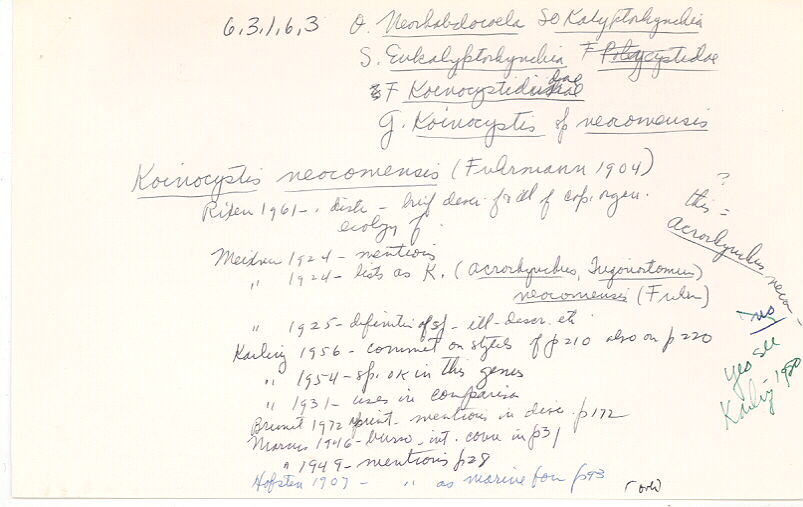 6,3,1,6,3 O. Neorhabdocoela SO Kalyptorhynchia
S. Eukalyptorhynchia F Polycystidae
F Koinocystididae
G. Koinocystis sp neocomensis
Koinocystis neocomensis (Fuhrmann 1904)
1961 - distr - brief descr.
ecology of
Meixner 1924 - mentions
" 1924 - lists as K. (Acrorhynchus, Trigonostomum)
neocomensis (Fuhr)
" 1925 - definition of sp - ill - descr. etc
Karling 1956 - comment on stylets of p210 also on p220
" 1954 - sp. ok in this genus
" 1931 - uses in comparison
1972 - mentions in disc. p172
Marcus 1946 - int. p31
" 1949 - mentions p28
Hofsten 1907 - " as marine p93
?
this =
Acrorhynchus neoco-
no
yes see
Karling 1980